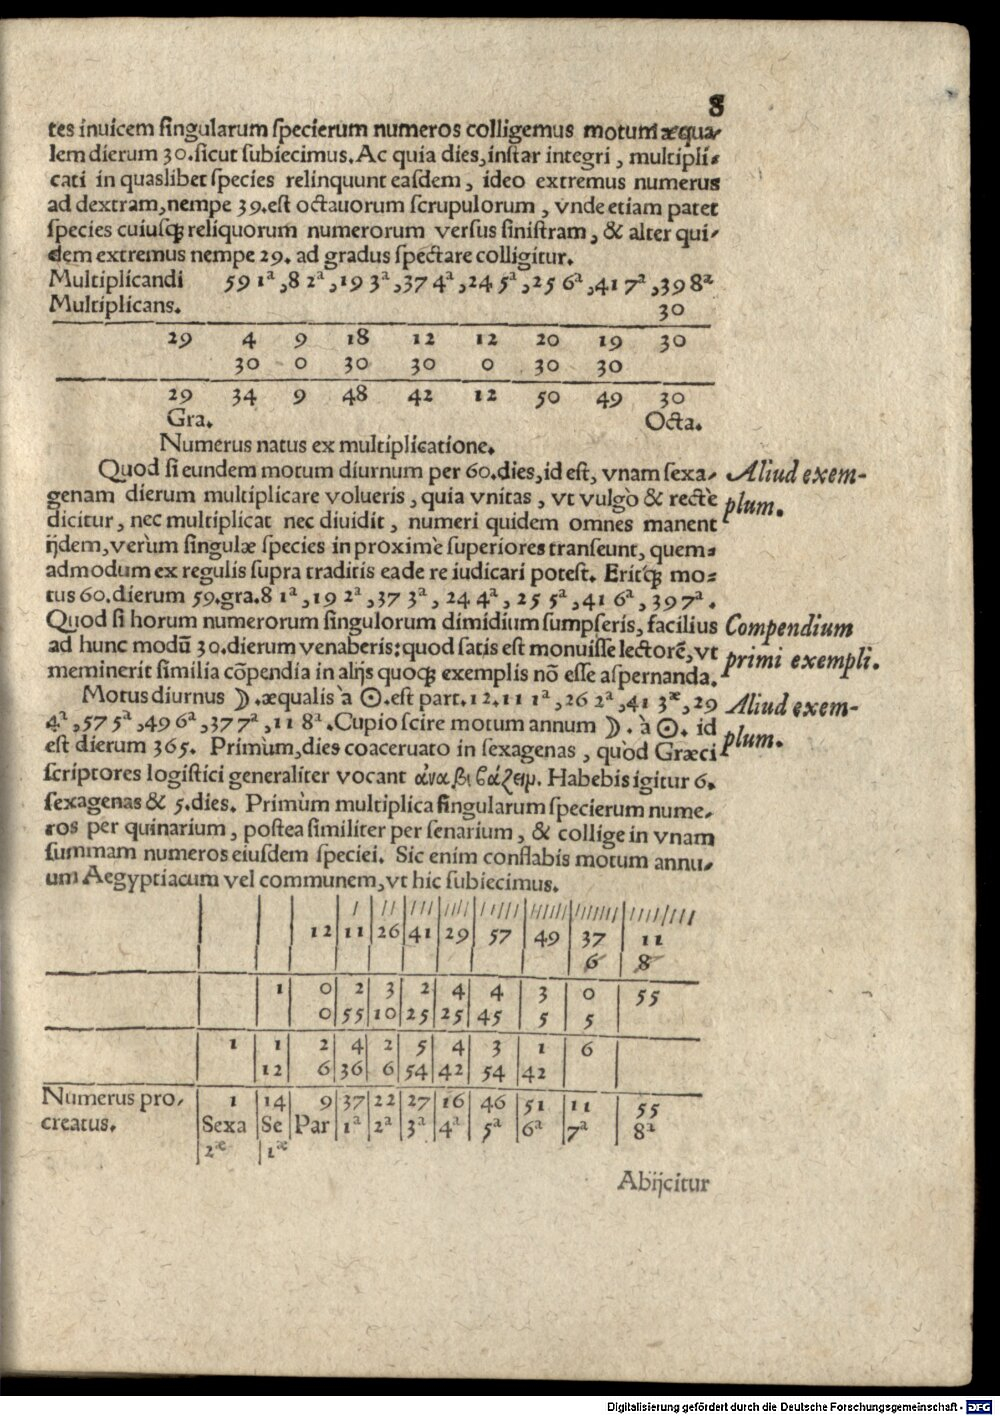 8
tes inuicem singularum specierum numeros colligemus motum æqua-
lem dierum 30. sicut subiecimus. Ac quia dies, instar integri, multipli-
cati in quaslibet species relinquunt easdem, ideo extremus numerus
ad dextram, nempe 39. est octauorum scrupulorum, vnde etiam patet
species cuiusqꝫ reliquorum numerorum versus sinistram, & alter qui-
dem extremus nempe 29. ad gradus spectare colligitur.
Multiplicandi 59 1ᵃ, 8 2ᵃ, 19 3ᵃ, 37 4ᵃ, 24 5ᵃ, 25 6ᵃ, 41 7ᵃ, 39 8ᵃ
Multiplicans. 30
29 4 9 18 12 12 20 19 30
30 0 30 30 0 30 30
29 34 9 48 42 12 50 49 30
Gra. Octa.
Numerus natus ex multiplicatione.
Quod si eundem motum diurnum per 60. dies, id est, vnam sexa-
genam dierum multiplicare volueris, quia vnitas, vt vulgò & rectè
dicitur, nec multiplicat nec diuidit, numeri quidem omnes manent
ijdem, verùm singulæ species in proximè superiores transeunt, quem-
admodum ex regulis supra traditis eade re iudicari potest. Eritqꝫ mo-
tus 60. dierum 59. gra. 8 1ᵃ, 19 2ᵃ, 37 3ᵃ, 24 4ᵃ, 25 5ᵃ, 41 6ᵃ, 39 7ᵃ.
Quod si horum numerorum singulorum dimidium sumpseris, facilius
ad hunc modũ 30. dierum venaberis: quod satis est monuisse lectorẽ, vt
meminerit similia cõpendia in alijs quoqꝫ exemplis nõ esse aspernanda.
Motus diurnus ☽. æqualis à ☉. est part. 12. 11 1ᵃ, 26 2ᵃ, 41 3ᵃ, 29
4ᵃ, 57 5ᵃ, 49 6ᵃ, 37 7ᵃ, 11 8ᵃ. Cupio scire motum annum ☽. à ☉. id
est dierum 365. Primùm, dies coaceruato in sexagenas, quòd Græci
scriptores logistici generaliter vocant ἀναβιβάζειν. Habebis igitur 6.
sexagenas & 5. dies. Primùm multiplica singularum specierum nume-
ros per quinarium, postea similiter per senarium, & collige in vnam
summam numeros eiusdem speciei. Sic enim conflabis motum annu-
um Aegyptiacum vel communem, vt hic subiecimus.
Aliud exem-
plum.
Compendium
primi exempli.
Aliud exem-
plum.
/ // /// //// ///// ////// /////// ////////
12 11 26 41 29 57 49 37 11
6 8
1 0 2 3 2 4 4 3 0 55
0 55 10 25 25 45 5 5
1 1 2 4 2 5 4 3 1 6
12 6 36 6 54 42 54 42
Numerus pro- 1 14 9 37 22 27 16 46 51 11 55
creatus. Sexa Se Par 1ᵃ 2ᵃ 3ᵃ 4ᵃ 5ᵃ 6ᵃ 7ᵃ 8ᵃ
2æ 1æ
Abijcitur
Digitalisierung gefördert durch die Deutsche Forschungsgemeinschaft - DFG